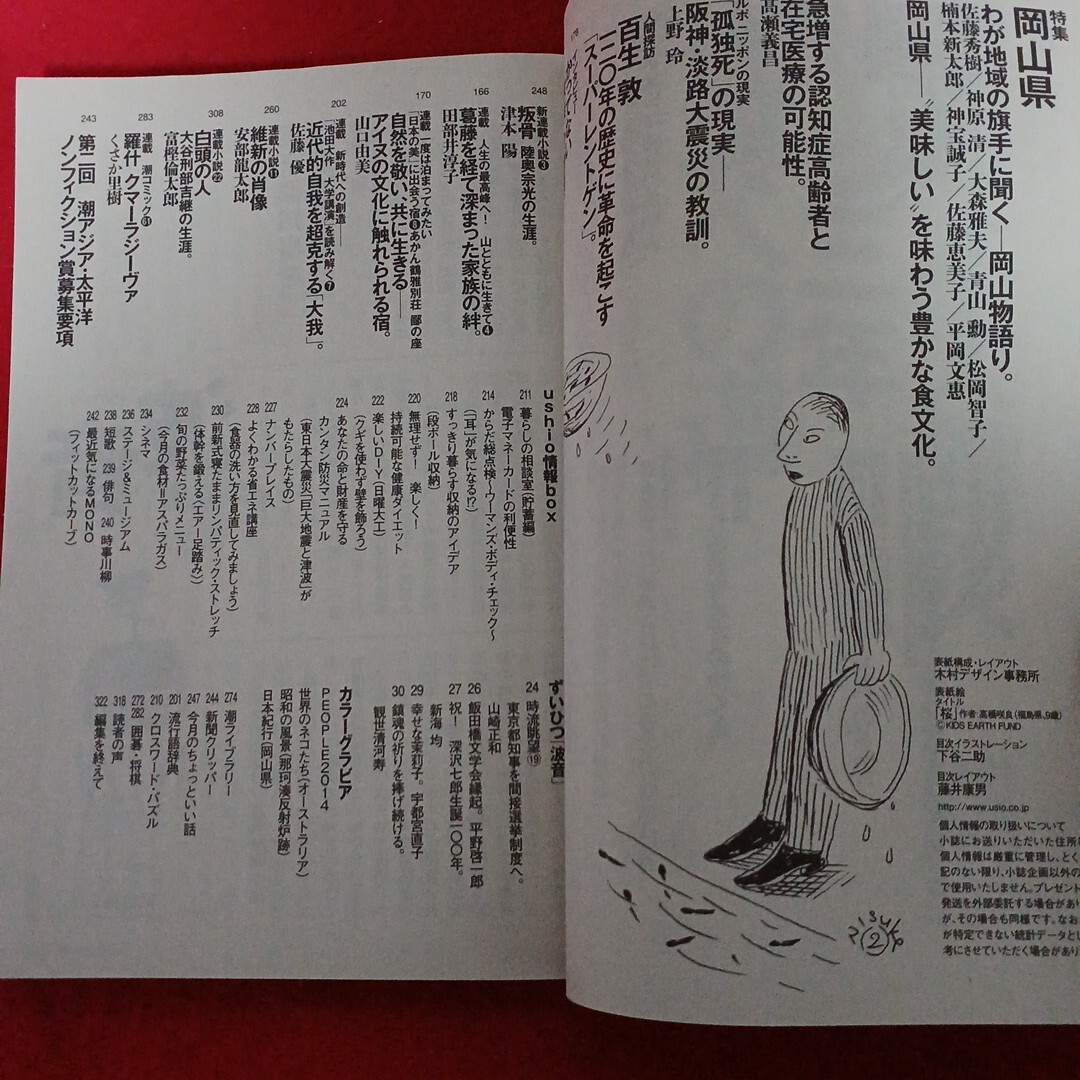 特集
岡山県
わが地域の旗手に聞く――岡山物語り。
佐藤秀樹／神原 清／大森雅夫／青山 勲／松岡智子／
楠本新太郎／神宝誠子／佐藤恵美子／平岡文惠
岡山県――〝美味しい〟を味わう豊かな食文化。
急増する認知症高齢者と
在宅医療の可能性。
髙瀬義昌
ルポ ニッポンの現実
「孤独死」の現実――
阪神・淡路大震災の教訓。
上野 玲
人間探訪
百生 敦
一二〇年の歴史に革命を起こす
「スーパーレントゲン」。
178
表紙構成・レイアウト
木村デザイン事務所
表紙絵
タイトル
「桜」 作者:高橋咲良(福島県、9歳)
©KIDS EARTH FUND
目次イラストレーション
下谷二助
目次レイアウト
藤井康男
http://www.usio.co.jp
個人情報の取り扱いについて
小誌にお送りいただいた住所
個人情報は厳重に管理し、とく
記のない限り、小誌企画以外の
で使用いたしません。プレゼント
発送を外部委託する場合があり
が、その場合も同様です。なお
が特定できない統計データとし
考にさせていただく場合があり
248
新連載小説❸
叛骨 陸奥宗光の生涯。
津本 陽
166
連載 人生の最高峰へ! 山とともに生きて❹
葛藤を経て深まった家族の絆。
田部井淳子
170
連載 一度は泊まってみたい
「日本の美」に出会う宿❽ あかん鶴雅別荘 鄙の座
自然を敬い、共に生きる――
アイヌの文化に触れられる宿。
山口由美
202
連載 新時代への創造――
「池田大作 大学講演」を読み解く❼
近代的自我を超克する「大我」。
佐藤 優
260
連載小説⓫
維新の肖像
安部龍太郎
308
連載小説㉒
白頭の人
大谷刑部吉継の生涯。
富樫倫太郎
283
連載 潮コミック61
羅什 クマーラジーヴァ
くさか里樹
243
第二回 潮アジア・太平洋
ノンフィクション賞募集要項
ushio情報box
211 暮らしの相談室(貯蓄編)
電子マネーカードの利便性
214 からだ総点検〜ウーマンズ・ボディ・チェック〜
(「耳」が気になる!?)
218 すっきり暮らす収納のアイデア
(段ボール収納)
220 無理せず! 楽しく!
持続可能な健康ダイエット
222 楽しいDIY(日曜大工)
(クギを使わず壁を飾ろう)
224 あなたの命と財産を守る
カンタン防災マニュアル
(東日本大震災「巨大地震と津波」が
もたらしたもの)
227 ナンバープレイス
228 よくわかる省エネ講座
(食器の洗い方を見直してみましょう)
230 前新式寝たままリンパティック・ストレッチ
(体幹を鍛える〈エアー足踏み〉)
232 旬の野菜たっぷりメニュー
(今月の食材=アスパラガス)
234 シネマ
236 ステージ&ミュージアム
238 短歌 239 俳句 240 時事川柳
242 最近気になるMONO
(フィットカットカーブ)
ずいひつ「波音」
24 時流眺望⑲
東京都知事を間接選挙制度へ。
山崎正和
26 飯田橋文学会縁起。平野啓一郎
27 祝! 深沢七郎生誕一〇〇年。
新海 均
29 幸せな茉莉子。宇都宮直子
30 鎮魂の祈りを捧げ続ける。
観世清河寿
カラーグラビア
PEOPLE2014
世界のネコたち(オーストラリア)
昭和の風景(那珂湊反射炉跡)
日本紀行(岡山県)
274 潮ライブラリー
244 新聞クリッパー
247 今月のちょっといい話
201 流行語辞典
210 クロスワード・パズル
272 282 囲碁・将棋
318 読者の声
322 編集を終えて